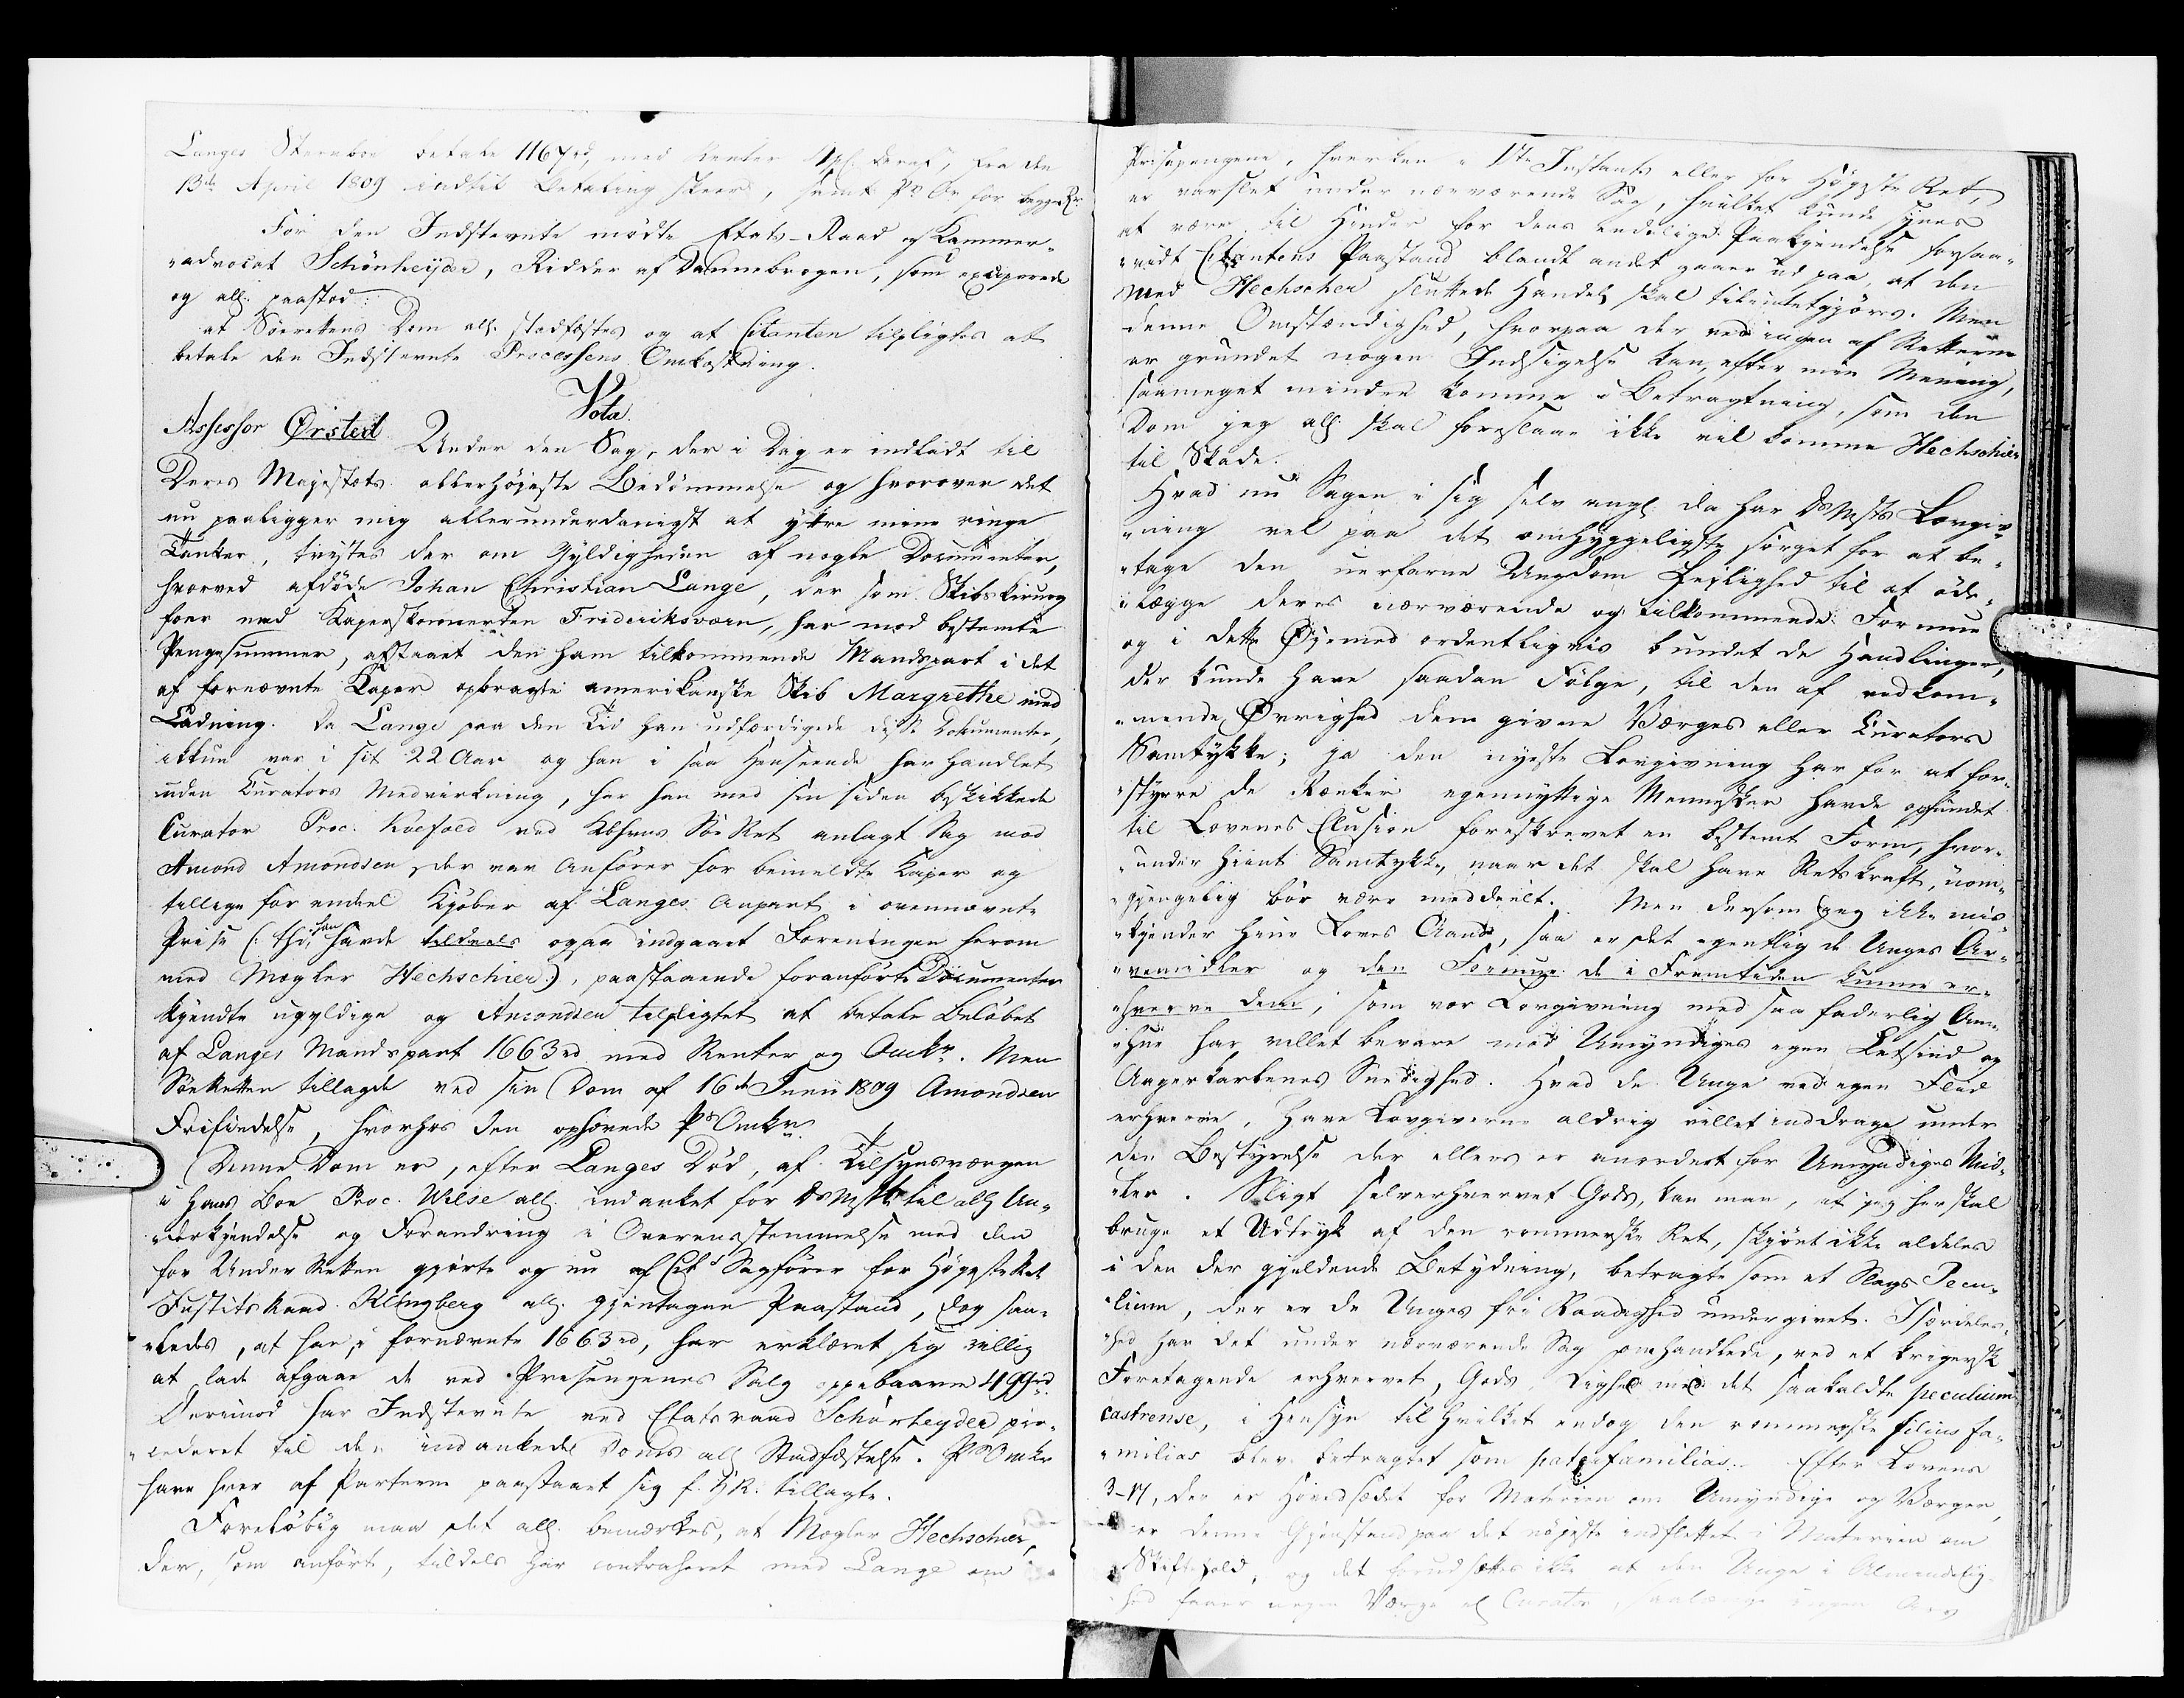 Langes Sterboe betale 1167rd, med Renter 4 pC. deraf, fra den
13de April 1809 indtil Betaling skeer, samt Ps On for begge Rr.
For den Indstevnte mødte Etats-Raad og Kammer-
advocat Schönheyder, Ridder af Dannebrogen, som exciperede
og all. paastod:
at Söerettens Dom all. stadfæstes og at Citanten tilpligtes at
betale den Indstevnte Processens Omkostning.
Vota
Assessor Ørsted Under den Sag, der i Dag er indladt til
Deres Majestets allerhöjeste Bedömmelse og hvorover det
nu paaligger mig allerunderdanigst at yttre mine ringe
Tanker, tvistes der om Gyldigheden af nogle Documenter,
hvorved afdöde Johan Christian Lange, der som Skibskirurg
foer med Kaperskonnerten Frideriksværn, har mod bestemte
Pengesummer, afstaaet den ham tilkommende Mandspart i det
af fornævnte Kaper opbragte amerikanske Skib Margrethe med
Ladning. Da Lange paa den Tid han udfærdigede disse Dokumenter,
ikkun var i sit 22 Aar og han i saa Henseende har handlet
uden Curators Medvirkning, har han med sin siden beskikkede
Curator Proc. Kuefoed ved Kbhvns Söe Ret anlagt Sag mod
Amond Amondsen, der var Anförer for bemeldte Kaper og
tillige for endeel Kjöber af Langes Anpart i ovennævnte
Prise (: thi han havde tildeels ogsaa indgaaet Foreningen herom
med Mægler Hechschier:), paastaaende foranförte Documenter
kjendte ugyldige og Amondsen tilpligtet at betale Belöbet
af Langes Mandspart 1663rd med Renter og Omkr. Men
Söe Retten tillagde ved sin Dom af 16de Junii 1809 Amondsen
Frifindelse, hvorhos den ophævede Ps Omkr.
Denne Dom er, efter Langes Död, af Tilsynsværgen
i hans Boe Proc. Wilse all. indanket for Ds Mst til all. Un-
derkjendelse og Forandring i Overensstemmelse med den
for Under Retten gjorte og nu af Cits Sagförer for Höjeste Ret
Justitsraad Klingberg all. gjentagne Paastand, dog saa-
ledes, at han, i fornævnte 1663rd, har erklæret sig villig
at lade afgaae de ved Presengenes Salg oppebaarne 499rd.
Derimod har Indstevnte ved Etatsraad Schönheyder pro-
cederet til den indankede Doms all. Stadfæstelse. Ps Omkr
have hver af Parterne paastaaet sig f. HR. tillagte.
Foreløbig maa det all. bemærkes, at Mægler Hechschier,
der, som anfört, tildels har contraheret med Lange om
Prisepengene, hverken i 1ste Instants eller for Höjeste Ret,
er varslet under nærværende Sag, hvilket kunde synes
at være til Hinder for dens endelige Paakjendelse forsaa-
vidt Citantens Paastand blandt andet gaaer ud paa, at den
med Hechscher sluttede Handel skal tilintetgjöres. Men
denne Omstændighed, hvorpaa der ved ingen af Retterne
er grundet nogen Indsigelse kan, efter min Mening,
saameget mindre komme i Betragtning, som den
Dom jeg all. skal foreslaae ikke vil komme Hechschier
til Skade.
Hvad nu Sagen i sig selv angl. da har Ds Msts Lovgiv-
ning vel paa det omhyggeligste sörget for at be-
tage den uerfarne Ungdom Lejlighed til at öde-
lægge deres nærværende og tilkommende Formue
og i dette Øjemed ordentligviis bundet de Handlinger,
der kunde have saadan Fölge, til den af vedkom-
mende Øvrighed dem givne Værges eller Curators
Samtykke; ja den nyeste Lovgivning har for at for-
styrre de Rænker egennyttige Mennesker havde opfundet
til Lovenes Elusion foreskrevet en bestemt Form, hvor-
under hiint Samtykke, naar det skal have Retskraft, uom-
gjengelig bör være meddeelt. Men dersom jeg ikke mis-
kjender hine Loves Aand, saa er det egentlig de Unges Ar-
vemidler og den Formue de i Fremtiden kunne er-
hverve dem, som vor Lovgivning med saa faderlig Om-
hue har villet bevare mod Umyndiges egen Letsind og
Aagerkarlenes Snedighed. Hvad de Unge ved egen Fliid
erhverve, have Lovgiverne aldrig villet inddrage under
den Bestyrelse der ellers er anordnet for Umyndiges Mid-
ler. Sligt selverhvervet Gods, kan man, at jeg her skal
bruge et Udtryk af den rommerske Ret, skjönt ikke aldeles
i den der gjeldende Betydning, betragte som et Slags Pecu-
lium, der er de Unges fri Raadighed undergivet. Isærdeles-
hed har det under nærværende Sag omhandlede, ved et krigersk
Foretagende erhvervet, Gods Lighed med det saakaldte peculium
castrense, i Hensyn til hvilket endog den rommerske filius fa-
milias blev betragtet som paterfamilias. Efter Lovens
3-17, der er Hovedsædet for Materien om Umyndige og Værger,
er denne Gjenstand paa det nöjeste indflettet i Materien om
Skiftehold, og det forudsættes ikke at den Unge i Almindelig-
hed faaer nogen Værge el. Curator, saalænge ingen Arv